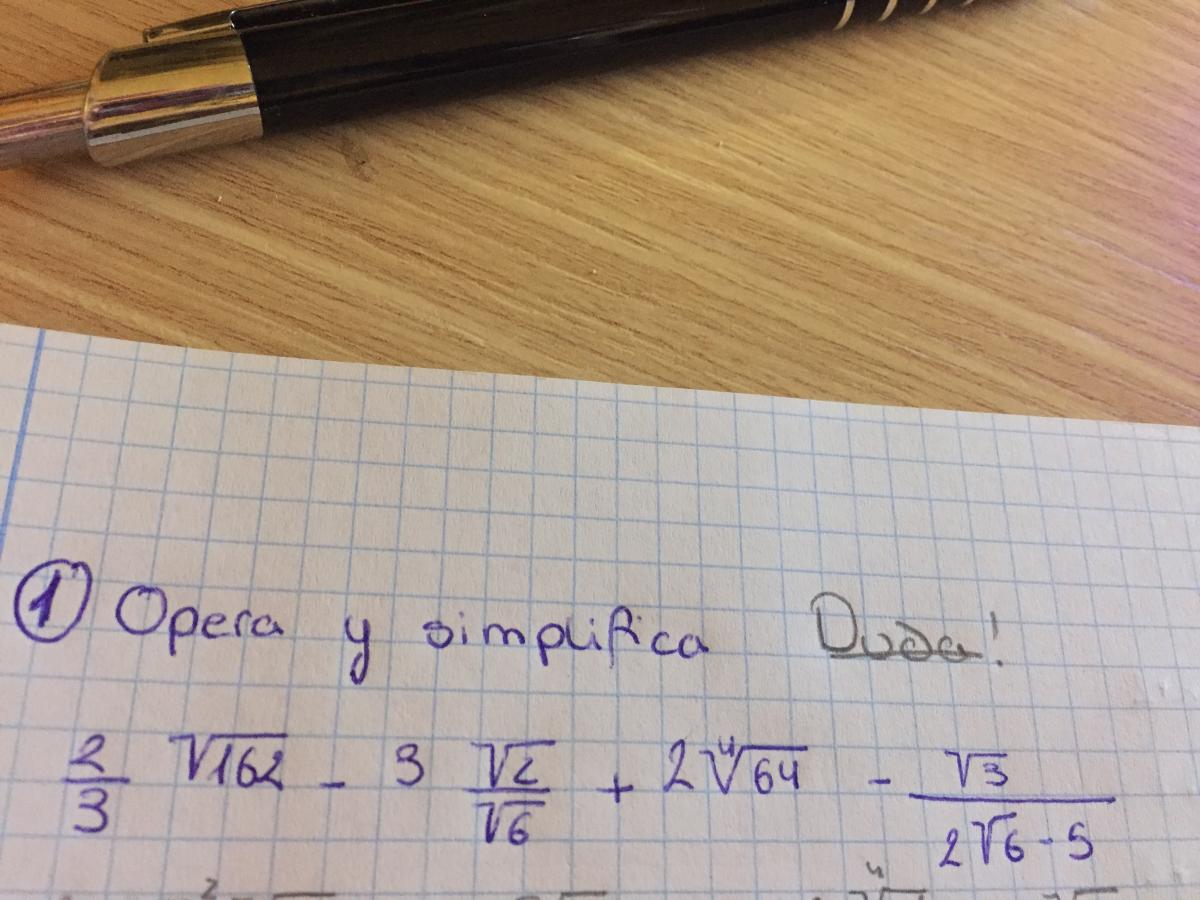 ① Opera y simplifica Duda!
2/3 √162 - 3 √2/√6 + 2 ∜64 - √3/(2√6 - 5)